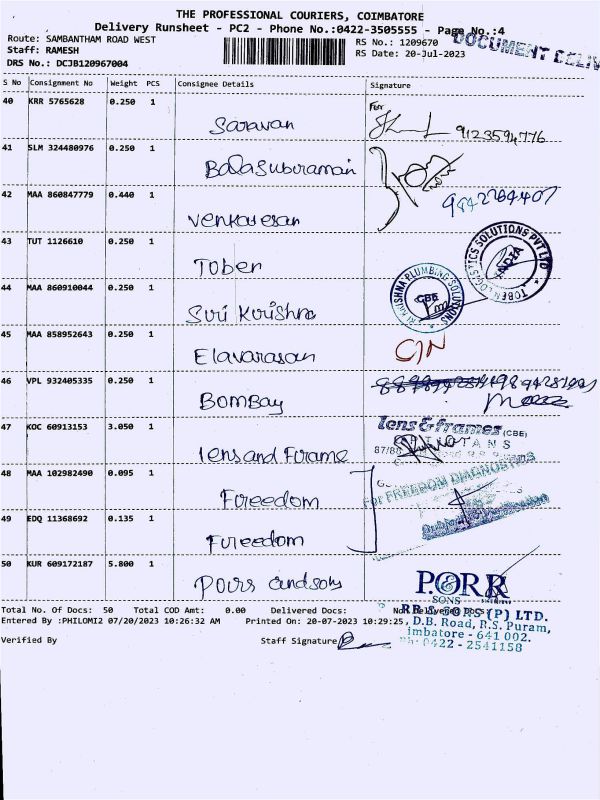 THE PROFESSIONAL COURIERS, COIMBATORE
Delivery Runsheet - PC2 - Phone No.:0422-3505555 - Page No.:4
Route: SAMBANTHAM ROAD WEST
RS No.: 1209670
DOCUMENT DELIV
Staff: RAMESH
RS Date: 20-Jul-2023
DRS No.: DCJB120967004
S No Consignment No Weight PCS Consignee Details Signature
40 KRR 5765628 0.250 1
Saravan
For
9123594776
41 SLM 324480976 0.250 1
Balasubiraman
42 MAA 860847779 0.440 1
Venkatesan
43 TUT 1126610 0.250 1
Toben
TOBEN LOGISTICS SOLUTIONS PVT LTD
INDIA
44 MAA 860910044 0.250 1
Suri Kurishna
KRISHNA PLUMBING SOLUTIONS
CBE
45 MAA 858952643 0.250 1
Elavarasan
46 VPL 932405335 0.250 1
Bombay
47 KOC 60913153 3.050 1
lens and Furame
lens & frames (CBE)
48 MAA 102982490 0.095 1
Fureedom
For FREEDOM DIAGNOSTICS
49 EDQ 11368692 0.135 1
Fureedom
50 KUR 609172187 5.800 1
Pours and sons
PORR
SONS
Total No. Of Docs: 50 Total COD Amt: 0.00 Delivered Docs:
Entered By :PHILOMI2 07/20/2023 10:26:32 AM Printed On: 20-07-2023 10:29:25
(P) LTD.
D.B. Road, R.S. Puram,
imbatore - 641 002.
Ph: 0422 - 2541158
Verified By Staff Signature